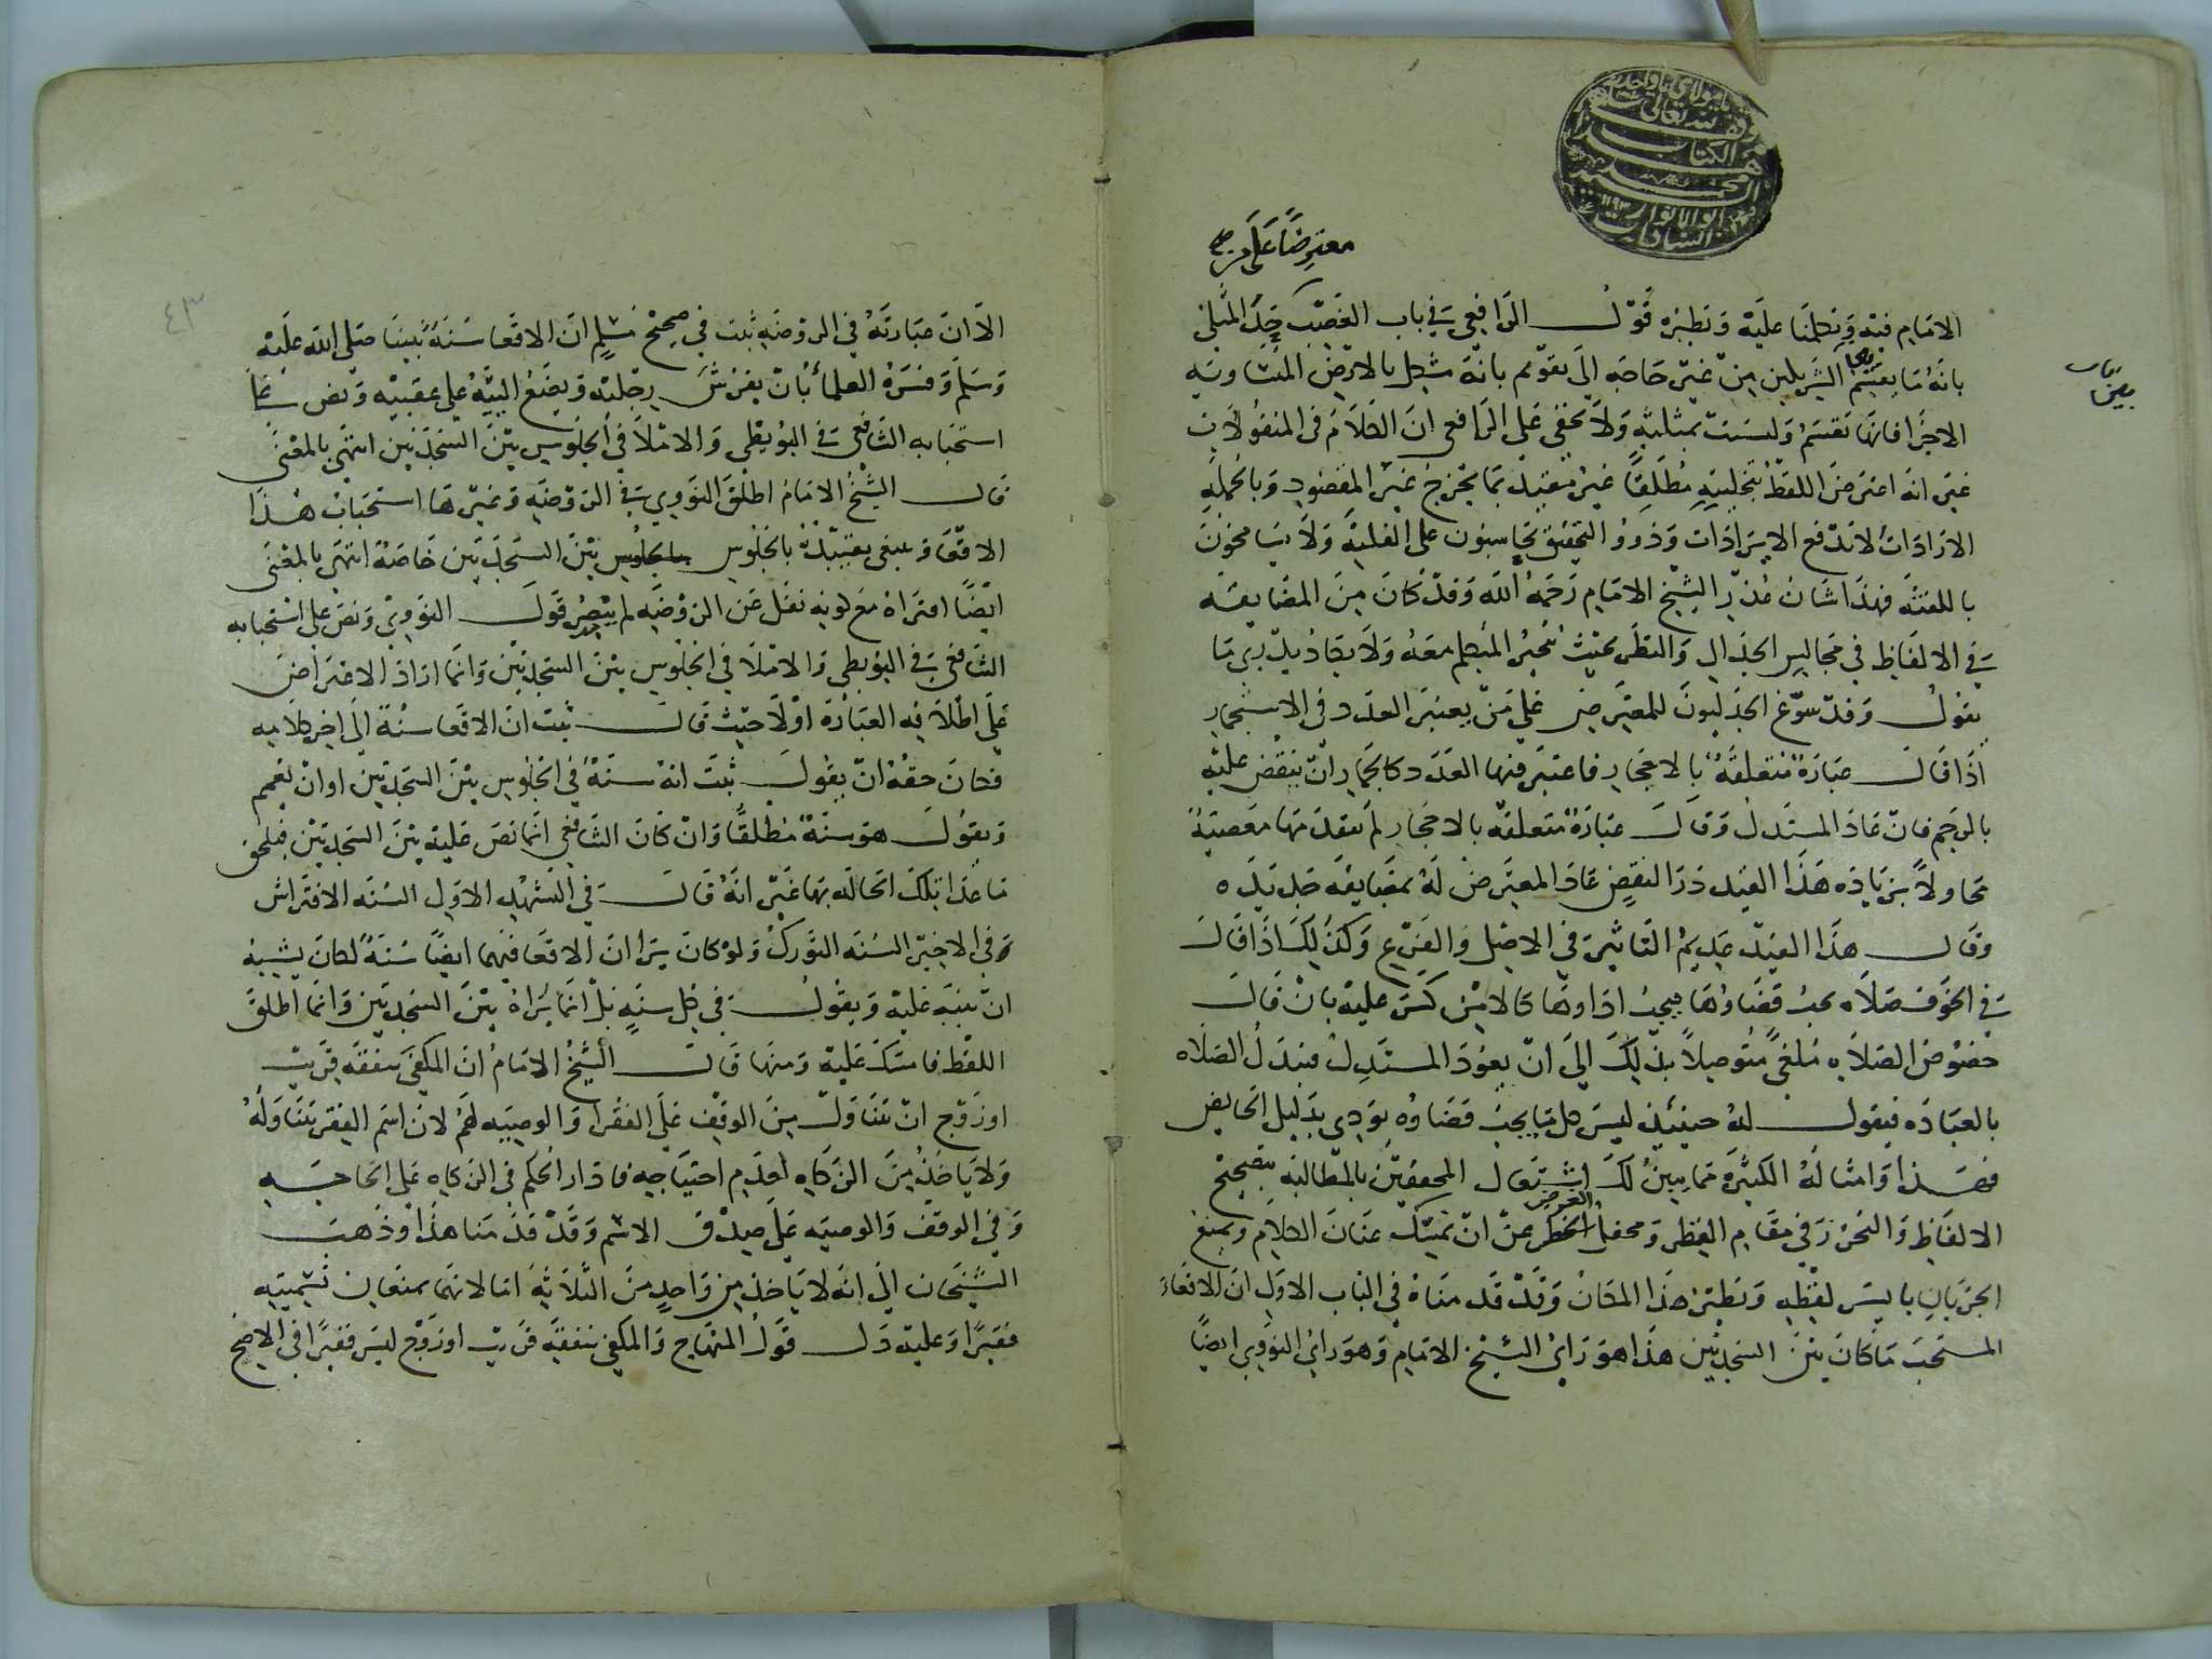 معترضا على من
الامام فيه وتكلمنا عليه ونظيره قول الرافعي في باب الغصب حد المثلي
بانه ما يقسم بين الشريكين من غير حاجة الى تقويم بانه يشكل بالارض المتساوية
الاجزا فانها تقسم وليست بمثلية ولا يخفى على الرافعي ان الكلام في المنقولات
غير انه اعترض اللفظ بتخليته مطلقا غير مقيد بما يخرج غير المقصود وبالجملة
الارادات لا تدفع الايرادات وذوو التحقيق يحاسبون على القليلة ولا يسامحون
باللفتة فهذا شان مدر الشيخ الامام رحمه الله وقد كان من المضايقة
في الالفاظ في مجالس الجدال والنظر بحيث يتحير المتكلم معه ولا يكاد يدري ما
يقول وقد سوغ الجدليون للمعترض على من يعتبر العدد في الاستجمار
اذا قال عبادة متعلقة بالاحجار فاعتبر فيها العدد كالجمار ان ينقض عليه
بالرجم فان عاد المستدل وقال عبادة متعلقة بالاحجار لم تتقدمها معصية
محاولا بزيادة هذا القيد درا النقض عاد المعترض له بمضايقة جدلية
وقال هذا القيد عديم التاثير في الاصل والفرع وكذلك اذا قال
في الخوف صلاة يجب قضاوها فيجب اداوها كالامن كسر عليه بان قال
خصوص الصلاة ملغى متوصلا بذلك الى ان يعود المستدل فيبدل الصلاة
بالعبادة فيقول له حينئذ ليس كل ما يجب قضاوه يودي بدليل الحايض
فهذا وامثاله الكثيرة مما يبين لك اشتغال المحققين بالمطالبة بتصحيح
الالفاظ والتحرز في مقام النظر ومحفل الخطر عن ان تمسك عنان الكلام وتمنع
الجريان بايسر لفظة ونظير هذا المكان وقد قدمناه في الباب الاول ان الاقعاء
المستحب ما كان بين السجدتين هذا هو راي الشيخ الامام وهو راي النووي ايضا
الا ان عبارته في الروضة ثبت في صحيح مسلم ان الاقعا سنة نبينا صلى الله عليه
وسلم وفسره العلماء بان يفرش رجليه ويضع اليتيه على عقبيه ونص على
استحبابه الشافعي في البويطي والاملا في الجلوس بين السجدتين انتهى بالمعنى
قال الشيخ الامام اطلق النووي في الروضة وغيرها استحباب هذا
الاقعا وينبغي تقييده بالجلوس بين السجدتين خاصة انتهى بالمعنى
ايضا افتراه مع كونه نقل عن الروضة لم يبصر قول النووي ونص على استحبابه
الشافعي في البويطي والاملا في الجلوس بين السجدتين وانما اراد الاعتراض
على اطلاقه العبارة اولا حيث قال ثبت ان الاقعا سنة الى اخر كلامه
فكان حقه ان يقول ثبت انه سنة في الجلوس بين السجدتين او ان يعمم
ويقول هو سنة مطلقا وان كان الشافعي انما نص عليه بين السجدتين فيلحق
ما عدا تلك الحالة بها غير انه قال في التشهد الاول السنة الافتراش
وفي الاخير السنة التورك ولو كان يرا ان الاقعا فيهما ايضا سنة لكان يشبه
ان ينبه عليه ويقول في كل سنة بل انما يراه بين السجدتين وانما اطلق
اللفظ فامسك عليه ومنها قال الشيخ الامام ان المكفي بنفقة قريب
او زوج ان تناول من الوقف على الفقرا والوصية لهم لان اسم الفقر تناوله
ولا ياخذ من الزكاه لعدم احتياجه فادار الحكم في الزكاه على الحاجة
وفي الوقف والوصية على صدق الاسم وقد قدمنا هذا وذهب
الشيخان الى انه لا ياخذ من واحد من الثلاثة اما لانهما يمنعان تسميته
فقيرا وعليه دل قول المنهاج والمكفي بنفقة قريب او زوج ليس فقيرا في الاصح